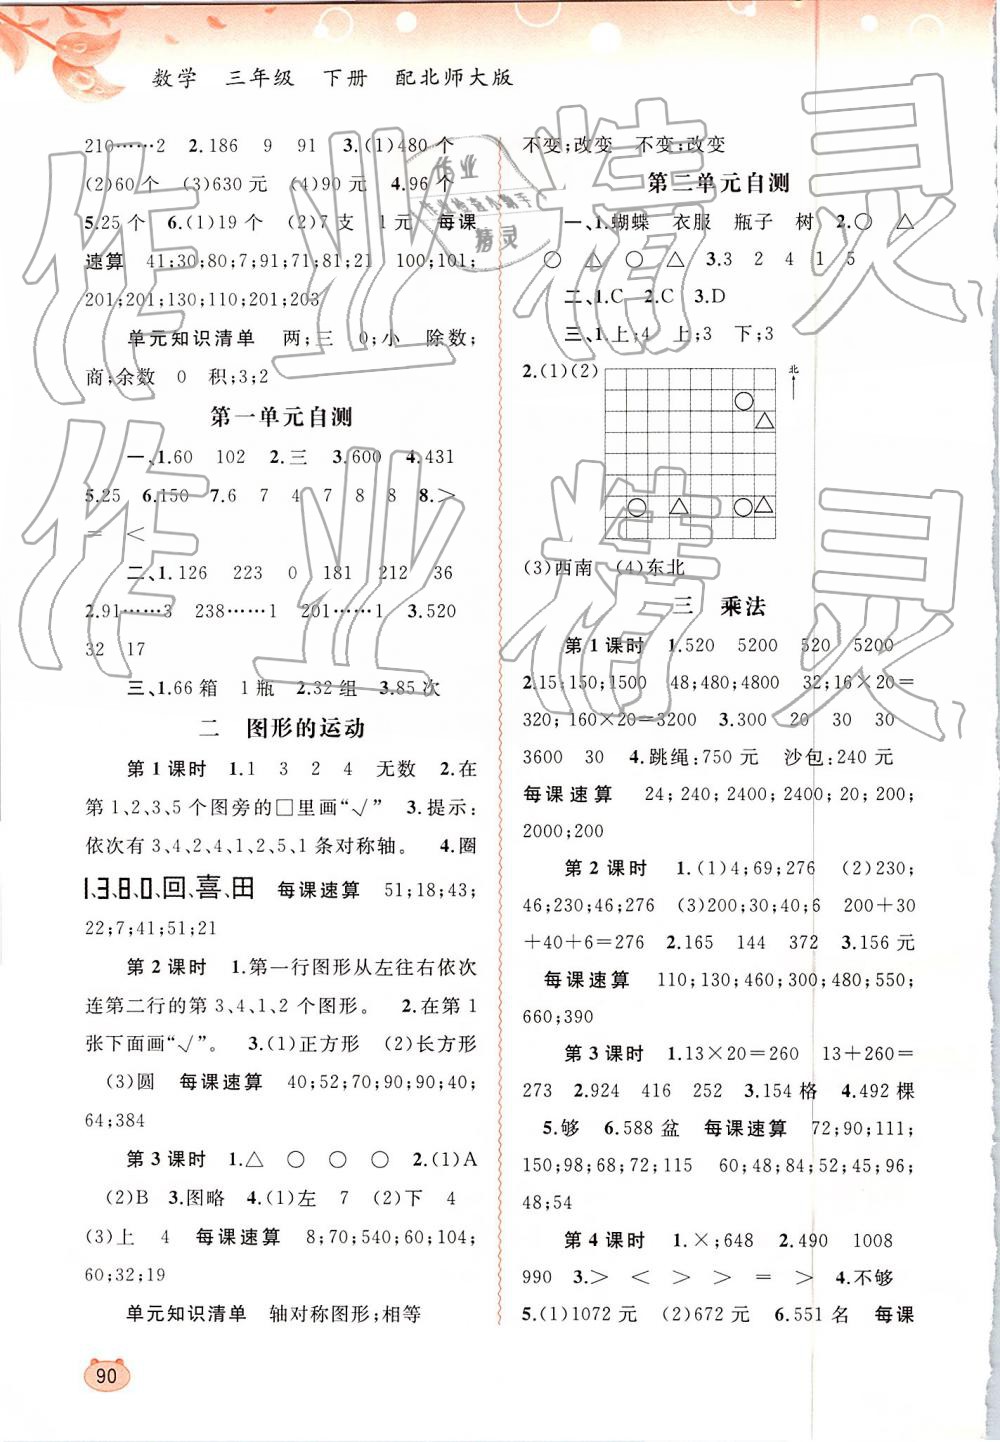 数学 三年级 下册 配北师大版
210……2 2.186 9 91 3.(1)480 个
(2)60 个 (3)630 元 (4)90 元 4.96 个
5.25 个 6.(1)19 个 (2)7 支 1 元 每课
速算 41;30;80;7;91;71;81;21 100;101;
201;201;130;110;201;203
单元知识清单 两;三 0;小 除数;
商;余数 0 积;3;2
第一单元自测
一、1.60 102 2.三 3.600 4.431
5.25 6.150 7.6 7 4 7 8 8 8.>
= <
二、1.126 223 0 181 212 36
2.91……3 238……1 201……1 3.520
32 17
三、1.66 箱 1 瓶 2.32 组 3.85 次
二 图形的运动
第 1 课时 1.1 3 2 4 无数 2.在
第 1、2、3、5 个图旁的□里画“√” 3.提示:
依次有 3、4、2、4、1、2、5、1 条对称轴。 4.圈
1、3、8、0、回、喜、田 每课速算 51;18;43;
22;7;41;51;21
第 2 课时 1.第一行图形从左往右依次
连第二行的第 3、4、1、2 个图形。 2.在第 1
张下面画“√”。 3.(1)正方形 (2)长方形
(3)圆 每课速算 40;52;70;90;90;40;
64;384
第 3 课时 1.△ ○ ○ ○ 2.(1)A
(2)B 3.图略 4.(1)左 7 (2)下 4
(3)上 4 每课速算 8;70;540;60;104;
60;32;19
单元知识清单 轴对称图形;相等
不变;改变 不变;改变
第二单元自测
一、1.蝴蝶 衣服 瓶子 树 2.○ △
○ △ ○ △ 3.3 2 4 1 5
二、1.C 2.C 3.D
三、1.上;4 上;3 下;3
2.(1)(2)
北
(3)西南 (4)东北
三 乘法
第 1 课时 1.520 5200 520 5200
2.15;150;1500 48;480;4800 32;16×20=
320;160×20=3200 3.300 20 30 30
3600 30 4.跳绳:750 元 沙包:240 元
每课速算 24;240;2400;2400;20;200;
2000;200
第 2 课时 1.(1)4;69;276 (2)230;
46;230;46;276 (3)200;30;40;6 200+30
+40+6=276 2.165 144 372 3.156 元
每课速算 110;130;460;300;480;550;
660;390
第 3 课时 1.13×20=260 13+260=
273 2.924 416 252 3.154 格 4.492 棵
5.够 6.588 盆 每课速算 72;90;111;
150;98;68;72;115 60;48;84;52;45;96;
48;54
第 4 课时 1.×;648 2.490 1008
990 3.> < > > = > 4.不够
5.(1)1072 元 (2)672 元 6.551 名 每课
90
作业精灵
作业精灵